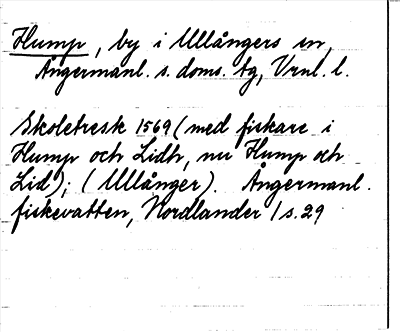 Hump, by i Ullångers sn,
Ångermanl. s. doms. tg, Vrnl. l.
Skoletresk 1569 (med fiskare i
Hump och Lidh, nu Hump och
Lid); (Ullånger). Ångermanl.
fiskevatten, Nordlander 1 s. 29